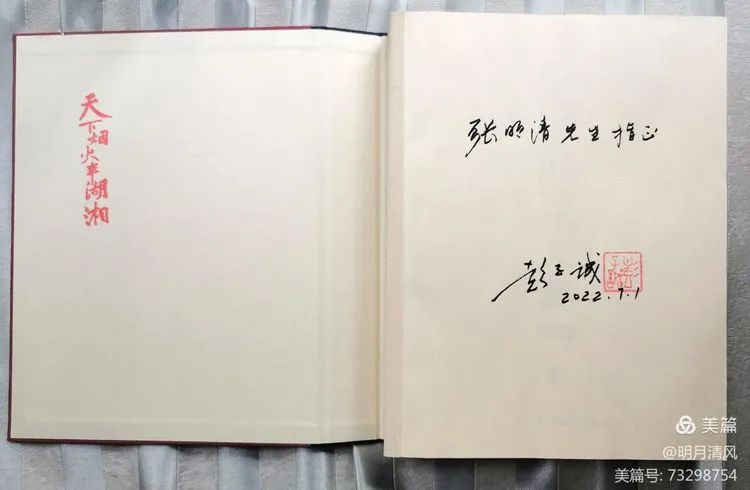 天下烟火半湖湘
张明清先生指正
彭子诚
2022.7.1
美篇
@明月清风
美篇号: 73298754